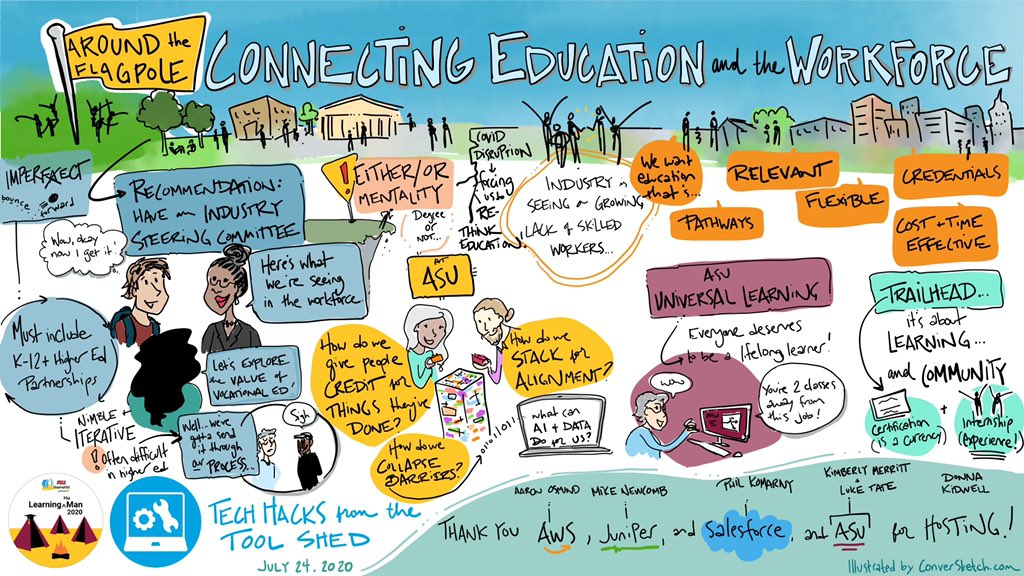 AROUND the
FLAGPOLE
CONNECTING EDUCATION and the WORKFORCE
bounce
forward
RECOMMENDATION:
HAVE an INDUSTRY
STEERING COMMITTEE
Wow, okay
now I get it!
Here's what
we're seeing
in the workforce
Must include
K-12 + Higher Ed
Partnerships
NIMBLE +
ITERATIVE
! Often difficult
in higher ed
Let's EXPLORE
the VALUE of
VOCATIONAL ED!
Well...we've
gotta send
it through
our PROCESS...
Sigh
!
EITHER/OR
MENTALITY
Degree
or
NOT...
COVID
DISRUPTION
forcing
us to
RE-
THINK
EDUCATION
INDUSTRY is
SEEING a GROWING
LACK of SKILLED
WORKERS...
We want
education
that is...
RELEVANT
CREDENTIALS
FLEXIBLE
PATHWAYS
COST + TIME
EFFECTIVE
AT
ASU
How do we
give people
CREDIT for
THINGS they've
DONE?
How do we
STACK for
ALIGNMENT?
How do we
COLLAPSE
BARRIERS?
what can
AI + DATA
Do for US?
ASU
UNIVERSAL LEARNING!
Everyone deserves
to be a lifelong learner!
WOW
You're 2 classes
away from
this job!
TRAILHEAD...
it's about
LEARNING...
and COMMUNITY
Certification
(is a currency)
+
Internship
(Experience!)
Learning Man
2020
TECH HACKS from the
TOOL SHED
JULY 24, 2020
AARON OSMOND
MIKE NEWCOMB
PHIL KOMARNY
KIMBERLY MERRITT
+
LUKE TATE
DONNA
KIDWELL
THANK YOU AWS, Juniper, and salesforce, and ASU for HOSTING!
Illustrated by ConverSketch.com